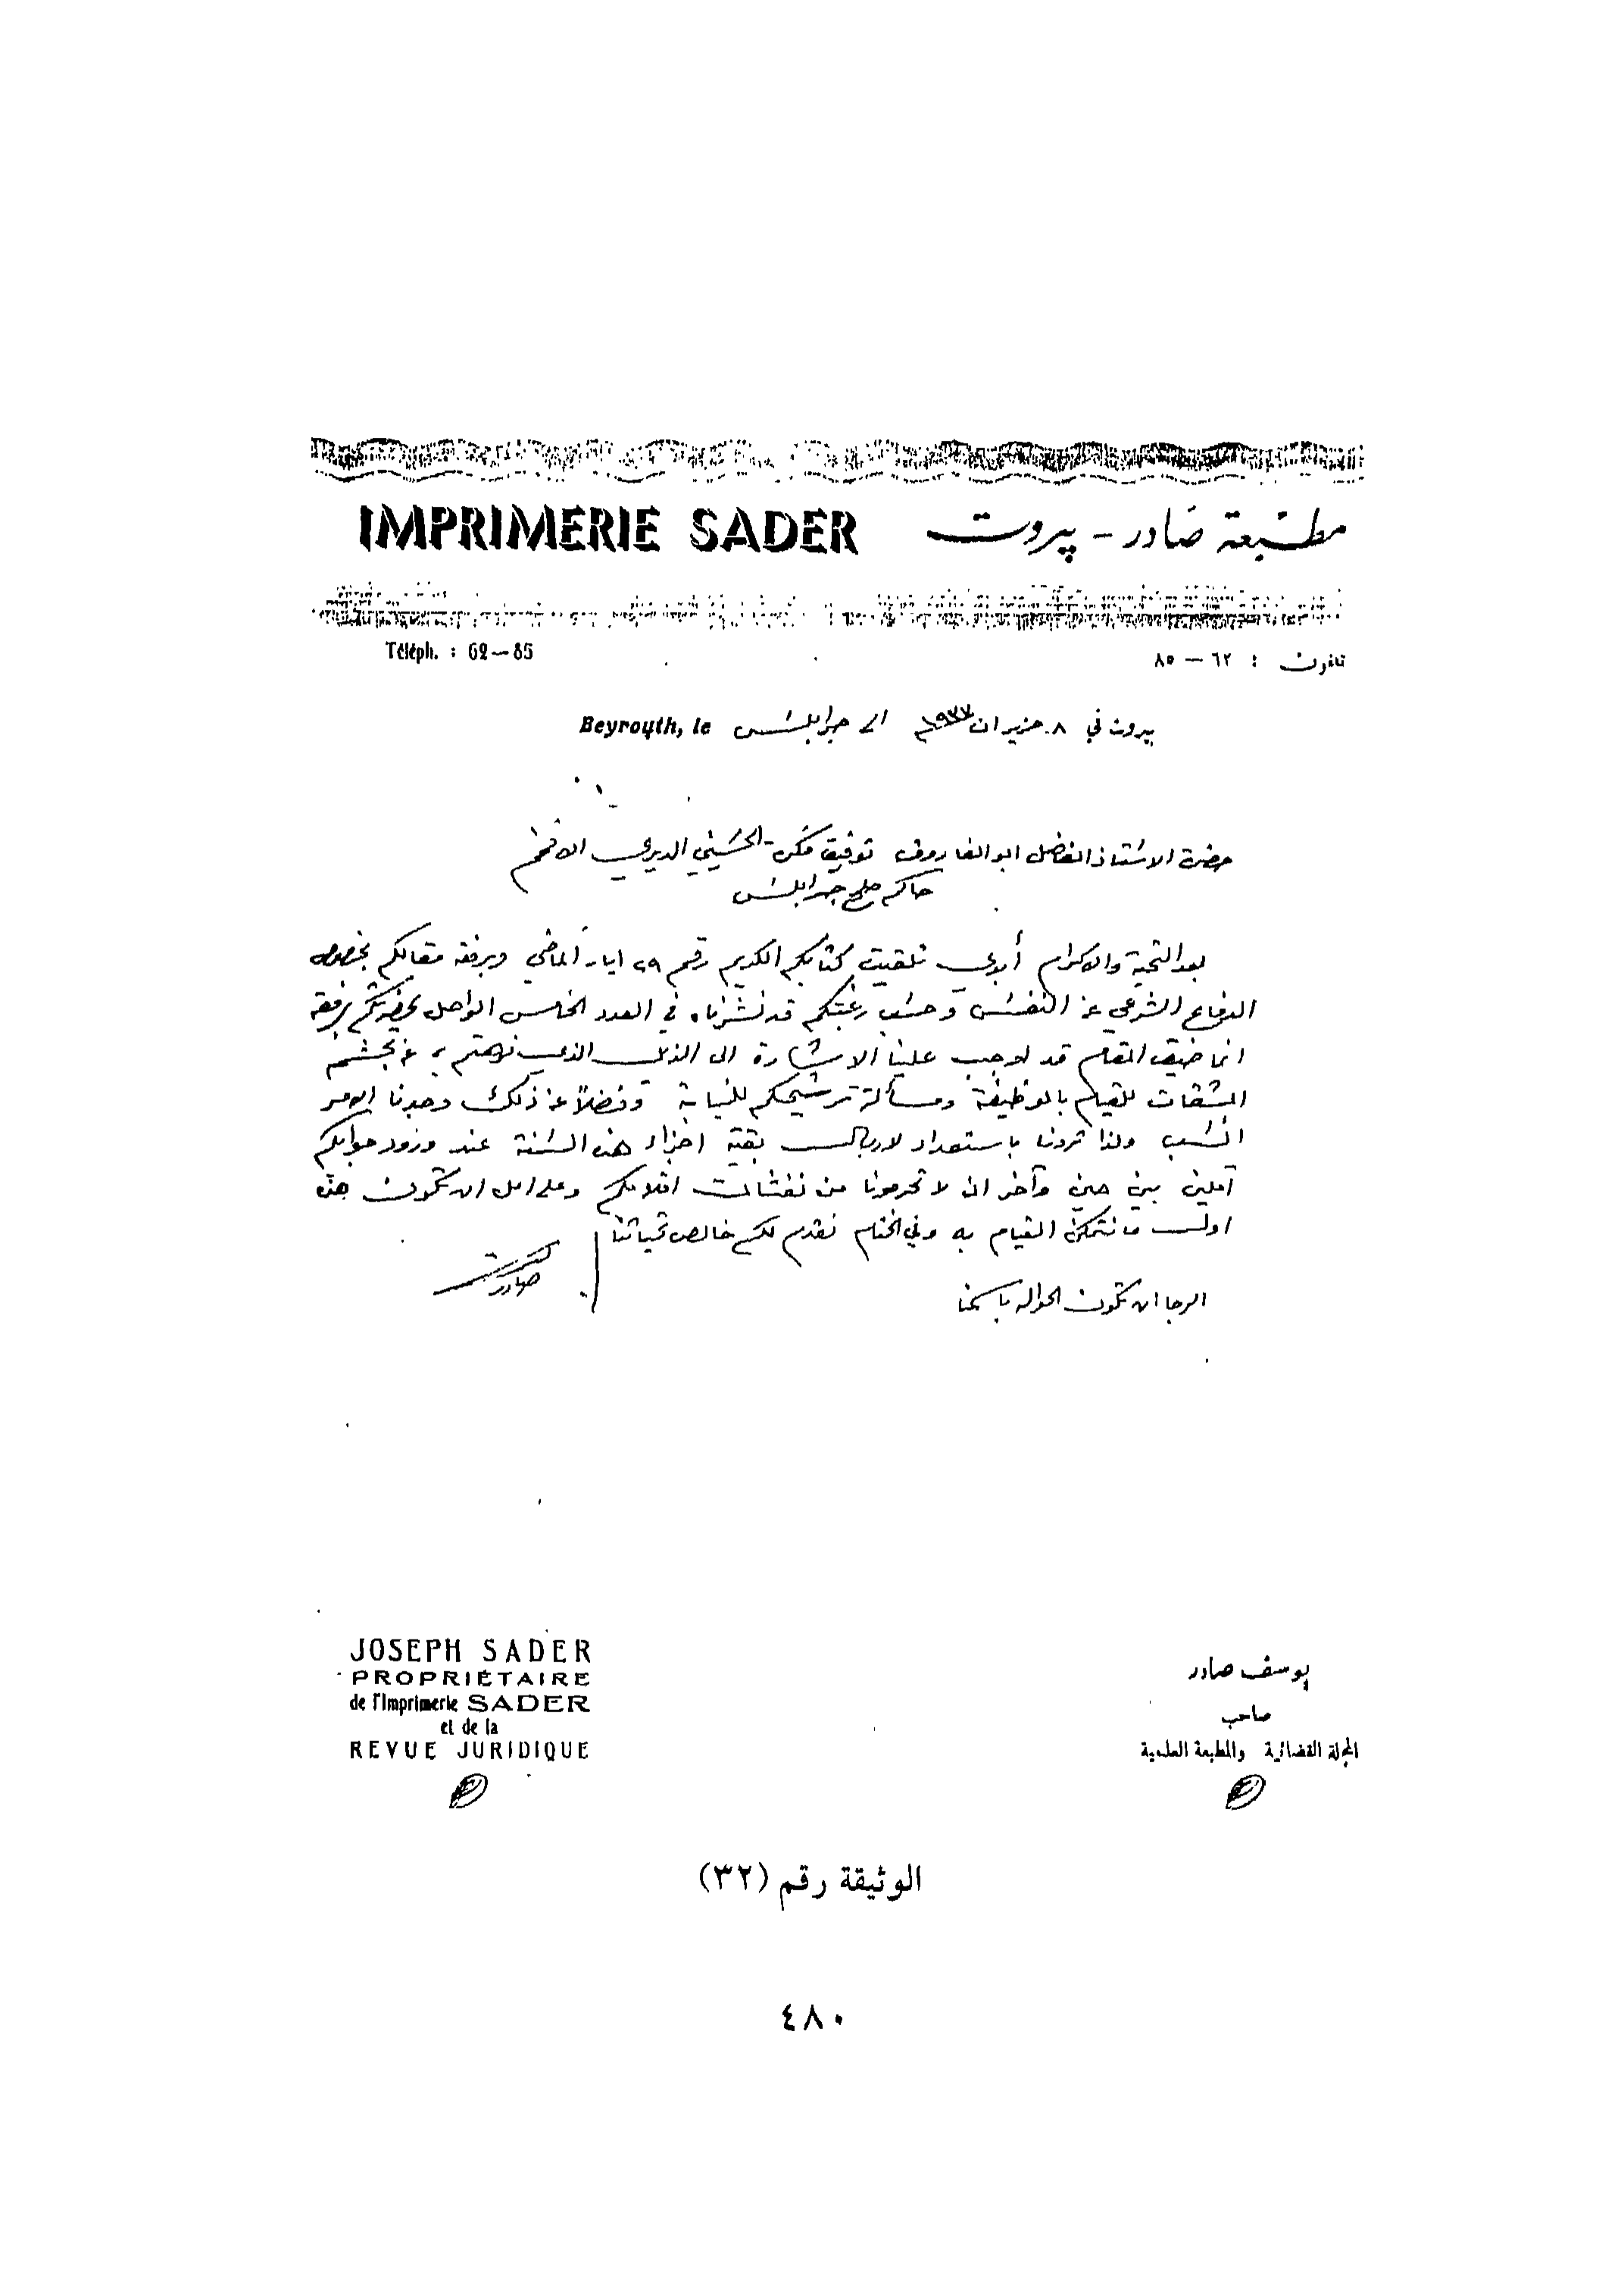 IMPRIMERIE SADER مطبعة صادر - بيروت
Téléph. : 62-85 تلفون : ٦٢ - ٨٥
بيروت في ٨ حزيران ١٩٣٧ الى جرابلس Beyrouth, le
حضرة الاستاذ الفاضل ابو الفاروق توفيق فكرت الحسيني الديري الافخم
حاكم صلح جرابلس
بعد التحية والاكرام أبدي تلقيت كتابكم الكريم رقم ٢٩ ايار الماضي وبرفقه مقالكم بخصوص
الدفاع الشرعي عن النفس وحسب رغبتكم قد نشرناه في العدد الخامس الواصل لحضرتكم برفقه
انما ضيق المقام قد اوجب علينا الاشارة الى الذي نوهتم به عن تجشم
المشقات للقيام بالوظيفة ومسألة ترشيحكم للنيابة وفضلاً عن ذلك وجدنا الامر
انسب ولذا ترونا باستعداد لارسال بقية اجزاء هذه السنة عند ورود جوابكم
آملين بين حين وآخر ان لا تحرمونا من نفثات اقلامكم وعلى امل ان تكون هذه
اول ما نتمكن القيام به وفي الختام نقدم لكم خالص تحياتنا
صادر
الرجا ان تكون الحوالة باسمنا
JOSEPH SADER
PROPRIÉTAIRE
de l'Imprimerie SADER
et de la
REVUE JURIDIQUE
يوسف صادر
صاحب
المجلة القضائية والمطبعة العلمية
الوثيقة رقم (٣٢)
٤٨٠